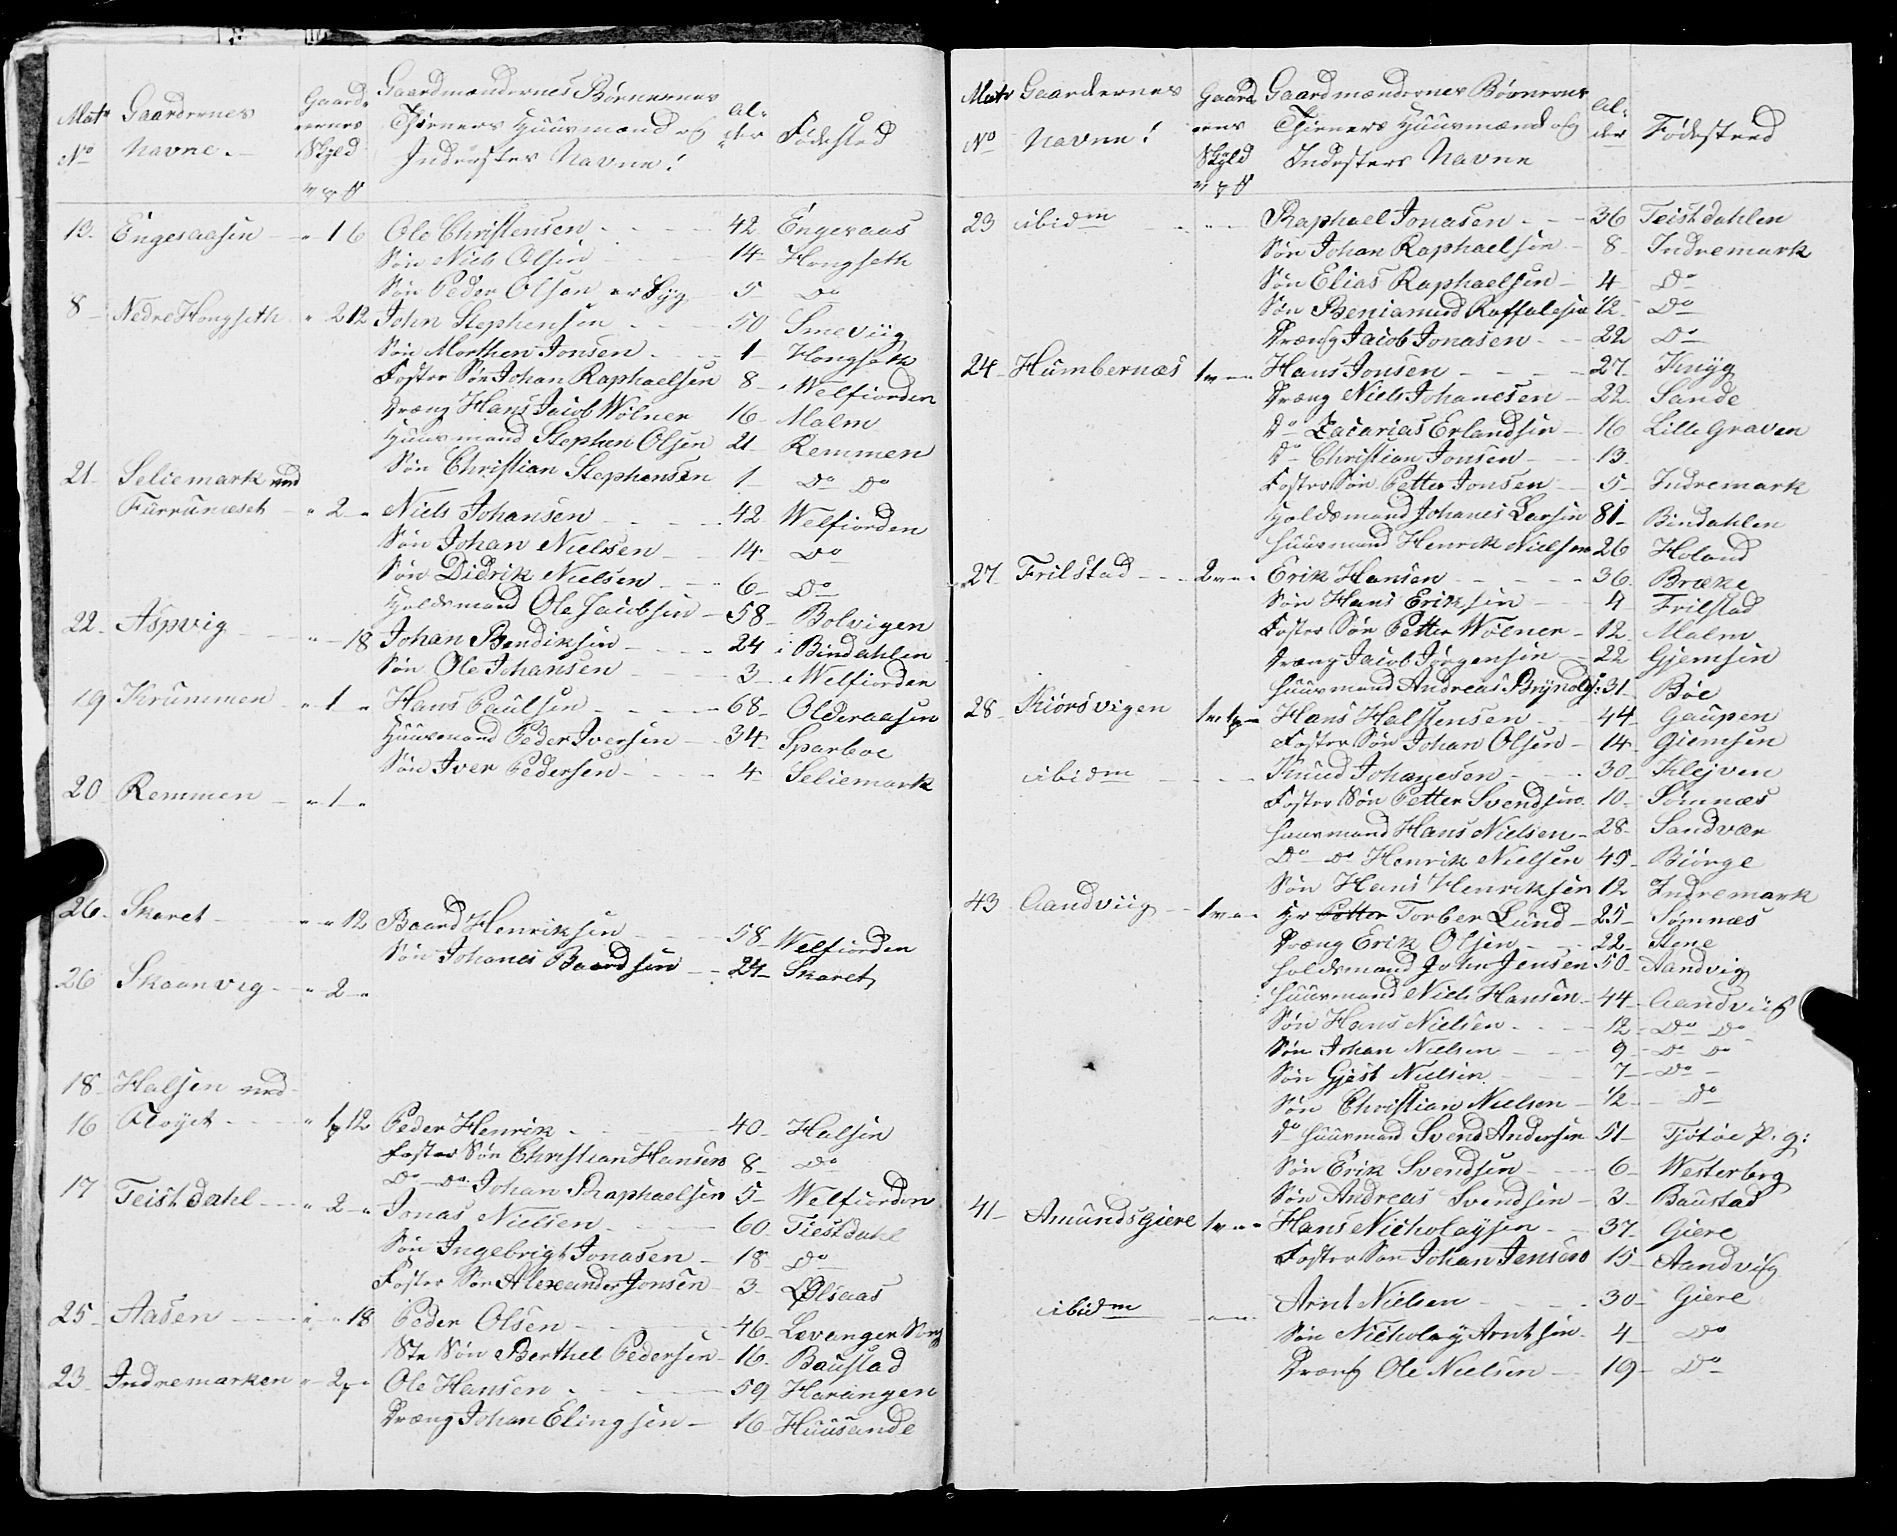 Matr Gaardernes Gaard- Gaardmændernes Børnernes Al-
No Navne. ernes Thieners Huusmænd og der Fødested
Skyld Inderster Navne!
13 Engesaasen " 1 6 Ole Christensen 42 Engesaas
Søn Niels Olsen 14 Hongseth
Søn Peder Olsen er Syg 5 Do
8 Nedre Hongseth " 2 12 John Stephensen 50 Smeviig
Søn Morthen Jonsen 1 Hongseth
Foster Søn Johan Raphaelsen 8 Welfiorden
Dræng Hans Jacob Wølner 16 Malm
Huusmand Stephen Olsen 21 Remmen
Søn Christian Stephensen 1 Do Do
21 Seliemark med
Furrunæset " 2 " Niels Johansen 42 Welfiorden
Søn Johan Nielsen 14 Do
Søn Didrik Nielsen 6 Do
Holdsmand Ole Jacobsen 58 Bolvigen
22 Aspvig " 18 Johan Bendiksen 24 i Bindahlen
Søn Ole Johansen 3 Welfiorden
19 Krummen " 1 " Hans Paulsen 68 Olderaasen
Huusmand Peder Iversen 34 Sparboe
Søn Iver Pedersen 4 Seliemark
20 Remmen " 1 "
26 Skaret " " 12 Baard Henriksen 58 Welfiorden
Søn Johanes Baardsen 24 Skaret
26 Skaanvig " 2 "
18 Halsen med
16 Fløyet " 1 12 Peder Henrik 40 Halsen
Foster Søn Christian Hansen 8 Do
Do Do Johan Raphaelsen 5 Welfiorden
17 Teistdahl " 2 " Jonas Nielsen 60 Tiestdahl
Søn Ingebrigt Jonasen 18 Do
Foster Søn Alexander Jonsen 3 Olsaas
25 Aasen " " 18 Peder Olsen 46 Levanger
Ste Søn Berthel Pedersen 16 Baustad
23 Indremarken " 2 " Ole Hansen 59 Harangen
Dræng Johan Elingsen 16 Huusande
Matr Gaardernes Gaard Gaardmændernes Børnernes Al-
No Navne! enes Thieners Huusmænd og der Fødested
Skyld Indesters Navne
23 ibidm Raphael Jonasen 36 Teistdahlen
Søn Johan Raphaelsen 8 Indremark
Søn Elias Raphaelsen 4 Do
Søn Beniamud Raffalsen 1/2 Do
Dræng Jacob Jonasen 22 Do
24 Humbernæs 1 " " Hans Jonsen 27 Knyg
Dræng Niels Johanesen 22 Sande
Do Zacarias Erlandsen 16 Lille Graven
Do Christian Jonsen 13
Foster Søn Petter Jonsen 5 Indremark
Holdsmand Johanes Larsen 81 Bindahlen
Huusmand Henrik Nielsen 26 Holand
27 Frilstad 2 " " Erik Hansen 36 Bræke
Søn Hans Eriksen 4 Frilstad
Foster Søn Petter Wølner 12 Malm
Dræng Jacob Jørgensen 22 Gjemsen
Huusmand Andreas Brynolfs: 31 Bøe
28 Kiørsvigen 1 1 " Hans Halstensen 44 Gaupen
Foster Søn Johan Olsen 14 Giemsen
ibidm Knud Johanesen 30 Klejven
Foster Søn Petter Svendsen 10 Sømnæs
Huusmand Hans Nielsen 28 Sandvær
Do Do Henrik Nielsen 45 Biørge
Søn Hans Henriksen 12 Indremark
43 Aandviig 1 " " Hr Petter Torber Lund 25 Sømnæs
Dræng Erik Olsen 22 Stene
Holdsmand John Jensen 50 Aandvig
Huusmand Niels Hansen 44 Aandviig
Søn Hans Nielsen 12 Do Do
Søn Johan Nielsen 9 Do Do
Søn Gjest Nielsen 7 Do
Søn Christian Nielsen 1/2 Do
Do Huusmand Svend Andersen 51 Tjøtøe P. g:
Søn Erik Svendsen 6 Westerberg
Søn Andreas Svendsen 3 Baustad
41 Amunds Giere 1 " " Hans Nicholaysen 37 Giere
Foster Søn Johan Jensen 15 Aandviig
ibidm Arnt Nielsen 30 Giere
Søn Nicholay Arntsen 4 Do
Dræng Ole Nielsen 19 Do